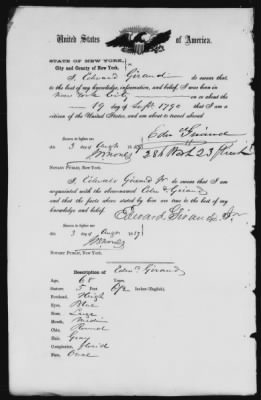 United States of America.
STATE OF NEW YORK,
City and County of New York.
I, Edward Giraud do swear that
to the best of my knowledge, information, and belief, I was born in
New York City on or about the
19 day of Sept 1790 that I am a
citizen of the United States, and am about to travel abroad
Sworn to before me
3
NOTARY PUBLIC, New York.
I, Edward Giraud Jr do swear that I am
acquainted with the above named Edwd Giraud
and that the facts above stated by him are true to the best of my
knowledge and belief.
Edward Giraud Jr
Sworn to before me
3
NOTARY PUBLIC, New York.
Description of Edwd Giraud
Age, Years.
Stature 5 Feet Inches (English).
Forehead, High
Eyes, Blue
Nose, Large
Mouth,
Chin, Round
Hair, Gray
Complexion, Florid
Face,